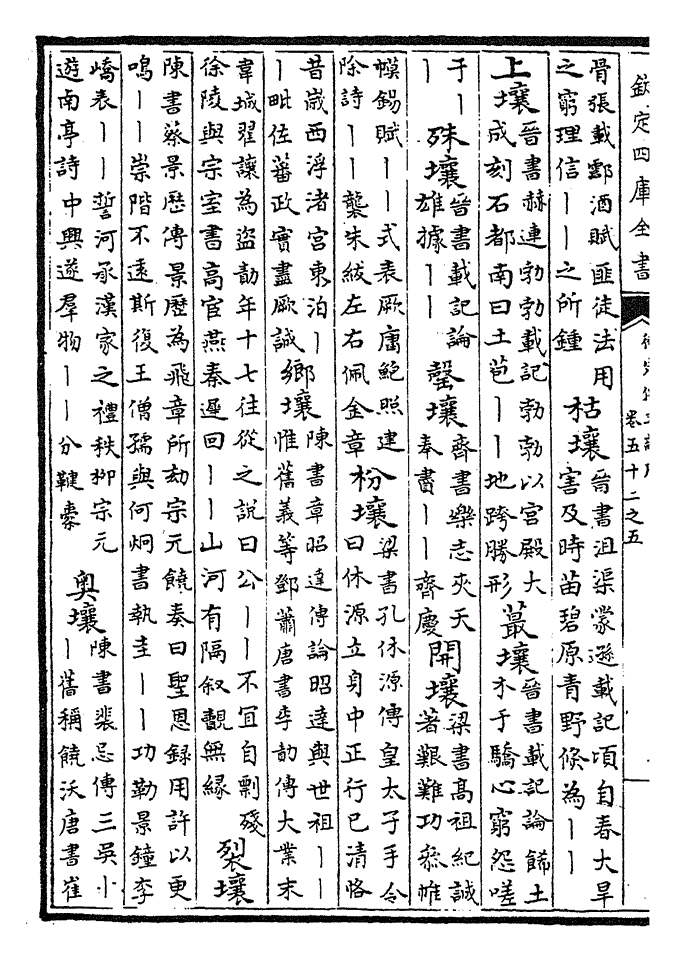 欽定四庫全書
卷五十二之五
骨張載酃酒賦匪徒法用
之窮理信丨丨之所鍾
枯壤
晉書沮渠蒙遜載記頃自春大旱
害及時苗碧原青野倐為丨丨
上壤
晉書赫連勃勃載記勃勃以宮殿大
成刻石都南曰土苞丨丨地跨勝形
蕞壤
晉書載記論餙土
木于驕心窮怨嗟
于丨
丨
殊壤
晉書載記論
雄據丨丨
罄壤
齊書樂志夾天
奉書丨丨齊慶
開壤
梁書高祖紀誠
著艱難功叅帷
幙錫賦丨丨式表厥庸鮑照建
除詩丨丨襲朱紱左右佩金章
枌壤
梁書孔休源傳皇太子手令
曰休源立身中正行已清恪
昔歲西浮渚宮東泊丨
丨毗佐蕃政實盡厥誠
鄉壤
陳書章昭達傳論昭達與世祖丨丨
惟舊義等鄧蕭唐書李勣傳大業末
韋城翟讓為盜勣年十七往從之說曰公丨丨不宜自剽殘
徐陵與宗室書高官燕秦遲回丨丨山河有隔叙覿無縁
裂壤
陳書蔡景歷傳景歷為飛章所劾宗元饒奏曰聖恩録用許以更
鳴丨丨崇階不遠斯復王僧孺與何炯書執圭丨丨功勒景鐘李
嶠表丨丨誓河承漢家之禮秩柳宗元
遊南亭詩中興遂羣物丨丨分鞬櫜
奥壤
陳書裴忌傳三吳小丨
丨舊稱饒沃唐書崔